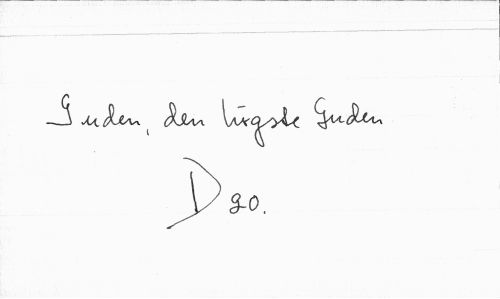 Guden, den högste Guden
D 90.